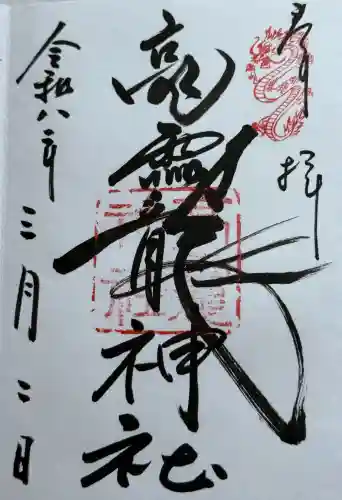 奉拝
高龗神社
龍
令和八年
三月二日